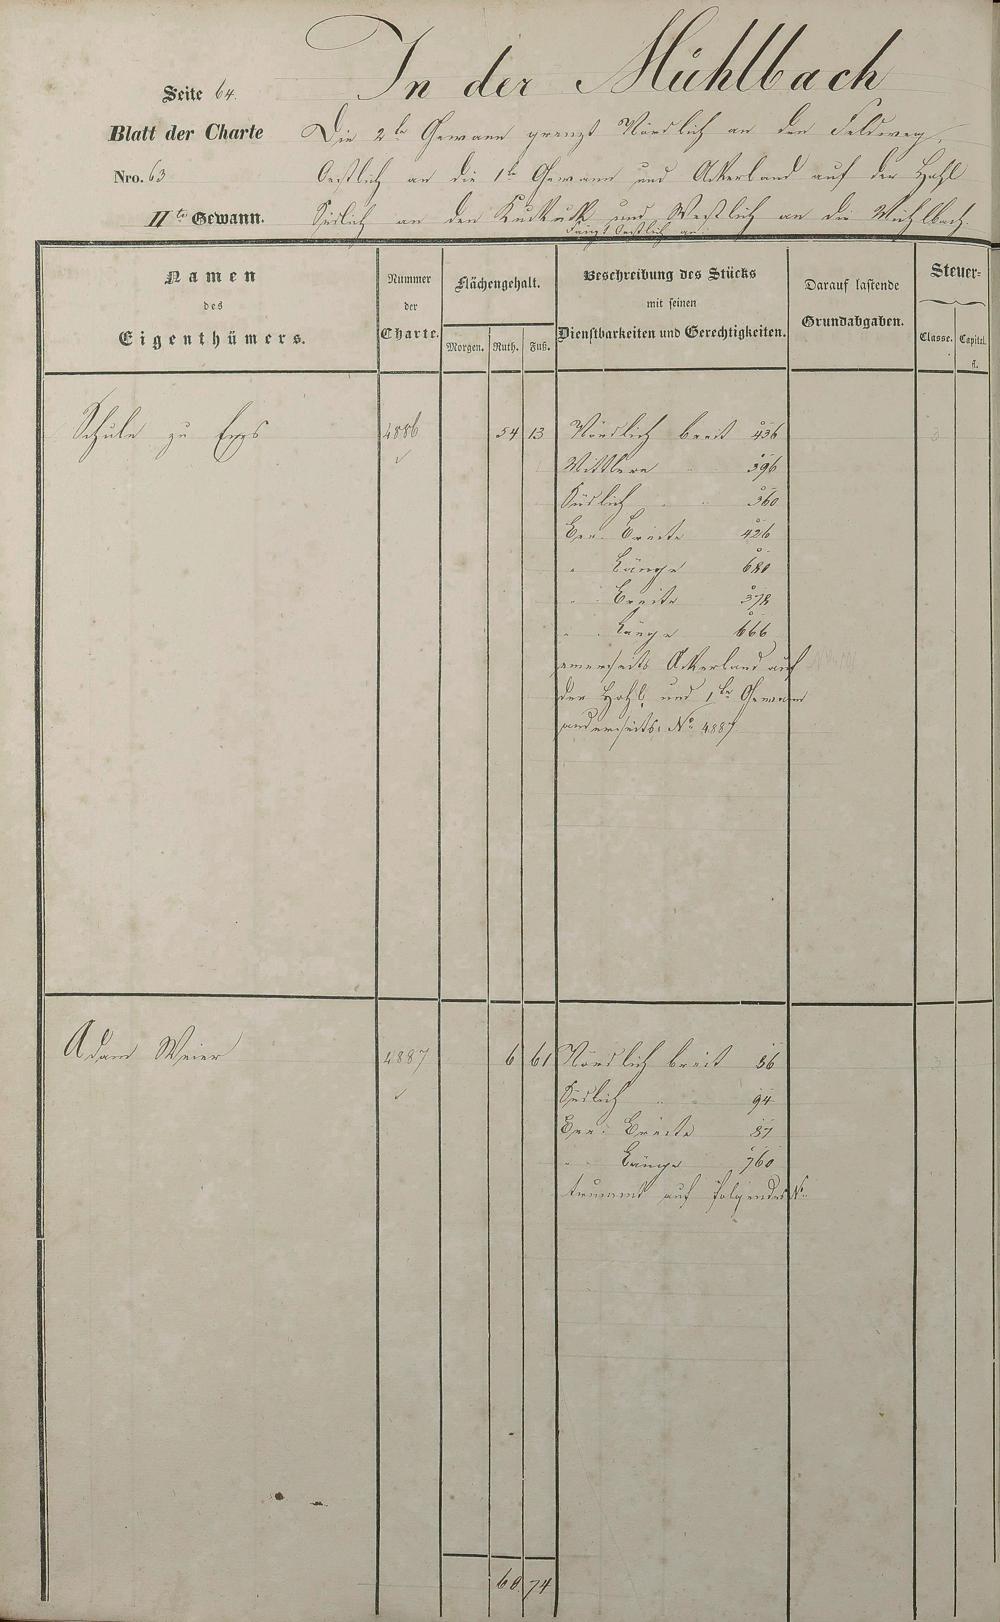 In der Mühlbach
Seite 64.
Blatt der Charte
Nro. 63
IIte Gewann.
Die 2te Gewann grenzt Nördlich an den Feldweg,
Oestlich an die 1te Gewann und Ackerland auf der Hohl
Südlich an den Kuckuck und Westlich an die Mühlbach.
Fängt Oestlich an.
Namen
des
Eigenthümers.
Nummer
der
Charte.
Flächengehalt.
Morgen. Ruth. Fuß.
Beschreibung des Stücks
mit seinen
Dienstbarkeiten und Gerechtigkeiten.
Darauf lastende
Grundabgaben.
Steuer-
Classe. Capital.
fl.
Schule zu Erps 4886 54 13 Nördlich breit 436 3
Mittlere " 396
Südlich " 360
Ber. Breite 426
" Länge 680
" Breite 378
" Länge 666
einerseits Ackerland auf
der Hohl und 1te Gewann
anderseits No 4887
Adam Weier 4887 6 61 Nördlich breit 86 3
Südlich " 94
Ber. Breite 87
" Länge 760
trummt auf folgendes No.
60 74